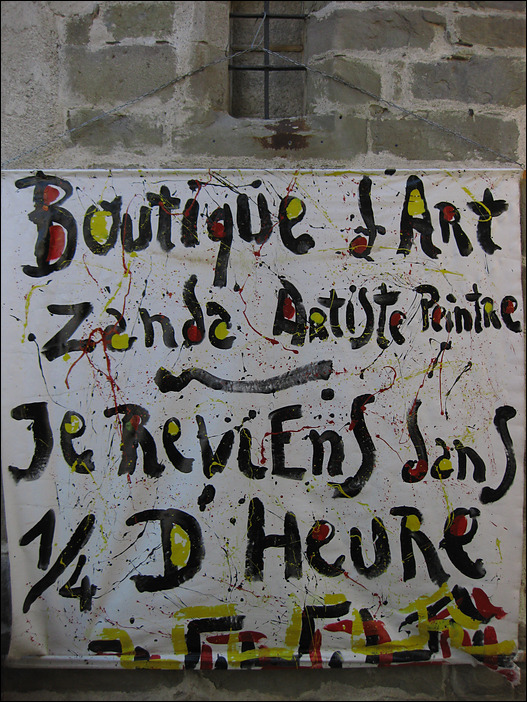 Boutique d'Art
Zanda Artiste Peintre
Je Reviens dans
1/4 D'Heure